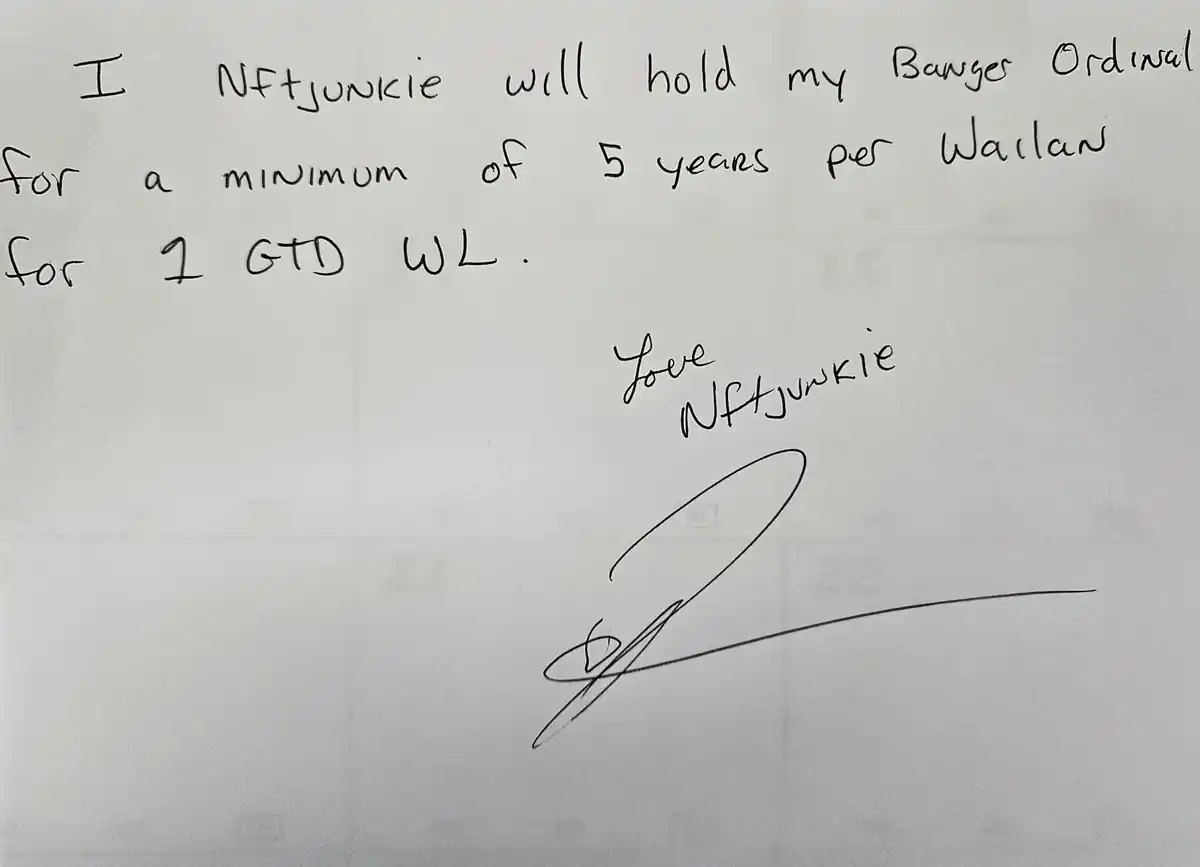 I Nftjunkie will hold my Banger Ordinal
for a minimum of 5 years per Wailan
for 1 GTD WL.
Love
Nftjunkie